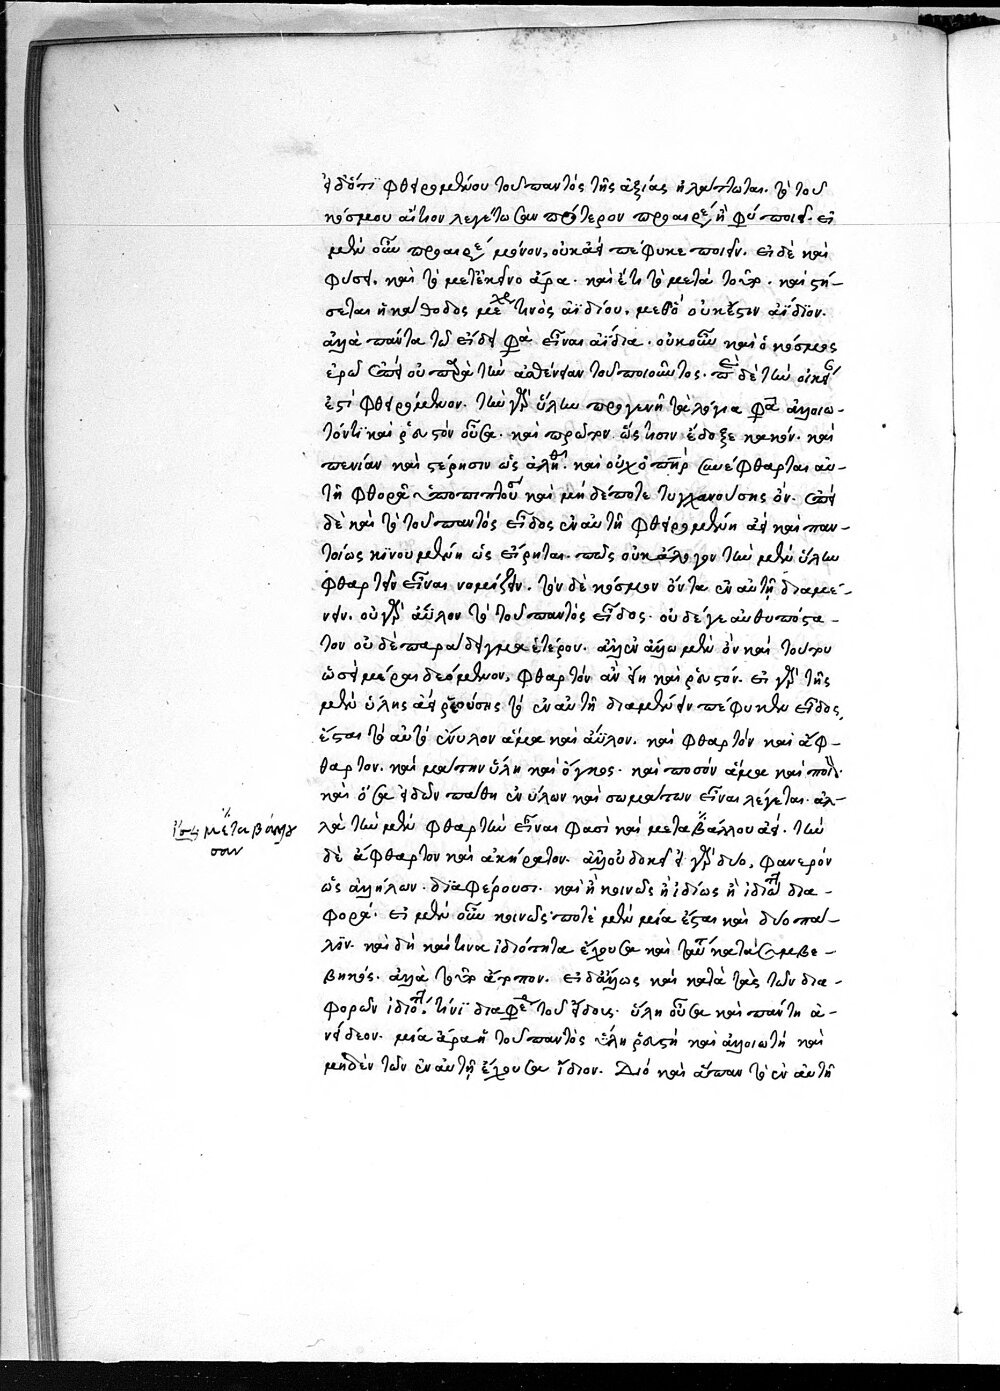 φθειρομένου τοῦ παντὸς τῆς ἀξίας ἠλάττωται. τὸ τοῦ
κόσμου αἴτιον λεγέτωσαν πρότερον προαιρέ ἢ φύ ποιεῖ. εἰ
μὲν οὖν προαιρέ μόνον, οὐκ ἀεὶ πέφυκε ποιεῖν. εἰ δὲ καὶ
φύσει, καὶ τὸ μετ' ἐκεῖνο ἄρα. καὶ ἔτι τὸ μετὰ τοῦτο. καὶ στή-
σεται ἡ κάθοδος μέχρι τινὸς ἀϊδίου, μεθ' ὃ οὐκ ἔστιν ἀΐδιον.
ἀλλὰ πάντα τῷ εἴδει εἶναι ἀΐδια. οὐκοῦν καὶ ὁ κόσμος
ἐρῶ οὐ παρὰ τὴν ἀσθένειαν τοῦ ποιοῦντος. δὲ τὴν οἰκεί
ἐστὶ φθειρόμενον. τὴν γὰρ ὕλην προγενῆ ἀλλοιω-
τόν τι καὶ ῥευστὸν οὖσα. καὶ πρῶτον ὥς τισιν ἔδοξε κακόν. καὶ
πενίαν καὶ στέρησιν ὡς ἀληθ. καὶ οὐχ ὁ συνέφθαρται αὐ-
τῇ φθορᾷ ὑποπιπτού καὶ μηδέποτε τυγχανούσης ὄν.
δὲ καὶ τὸ τοῦ παντὸς εἶδος ἐν αὐτῇ φθειρομένῃ ἀεὶ καὶ παν-
τοίως κινουμένῃ ὡς εἴρηται. πῶς οὐκ ἄλογον τὴν μὲν ὕλην
φθαρτὴν εἶναι νομίζειν. τὸν δὲ κόσμον ὄντα ἐν αὐτῇ διαμέ-
νειν. οὐ γὰρ ἄϋλον τὸ τοῦ παντὸς εἶδος. οὐδέ γε αὐθυπόστα-
τον οὐδὲ παράδειγμα ἑτέρου. ἀλλ' ἐν ἄλλῳ μὲν ὂν καὶ τούτου
ὡς ἕδρας δεόμενον, φθαρτὸν ἂν εἴη καὶ ῥευστόν. εἰ γὰρ τῆς
μὲν ὕλης ἀεὶ ῥεούσης τὸ ἐν αὐτῇ διαμένειν πέφυκεν εἶδος,
ἔσται τὸ αὐτὸ ἔνυλον ἅμα καὶ ἄϋλον. καὶ φθαρτὸν καὶ ἄφ-
θαρτον. καὶ μάτην ὕλη καὶ ὄγκος. καὶ ποσὸν ἅμα καὶ ποιὸ.
καὶ ὅσα εἰδῶν πάθη ἐνύλων καὶ σωμάτων εἶναι λέγεται. ἀλ-
λὰ τὴν μὲν φθαρτὴν εἶναι φασὶ καὶ μεταβάλλου ἀεί. τὴν
ἴσως μεταβάλλου
σαν
δὲ ἄφθαρτον καὶ ἀκήρατον. ἀλλ' οὐ δοκεῖ εἰ γὰρ δύο, φανερὸν
ὡς ἀλλήλων διαφέρουσι. καὶ ἢ κοινῶς ἢ ἰδίως ἢ ἰδιαίτ δια-
φορᾷ. εἰ μὲν οὖν κοινῶς ποτὲ μὲν μία ἔσται καὶ δύο πά-
λιν. καὶ δὴ καί τινα ἰδιότητα ἔχουσα καὶ ταύτ κατὰ συμβε-
βηκός. ἀλλὰ τοῦτο ἄτοπον. εἰ δ' ἄλλως καὶ κατὰ τὰς τῶν δια-
φορῶν ἰδιότ. τινὶ διαφέρει τοῦ εἴδους. ὕλη οὖσα καὶ πάντη ἀ-
νείδεον. μία ἄρα ἡ τοῦ παντὸς ὕλη ῥευστὴ καὶ ἀλλοιωτὴ καὶ
μηδὲν τῶν ἐν αὐτῇ ἔχουσα ἴδιον. Διὸ καὶ ἅπαν τὸ ἐν αὐτῇ